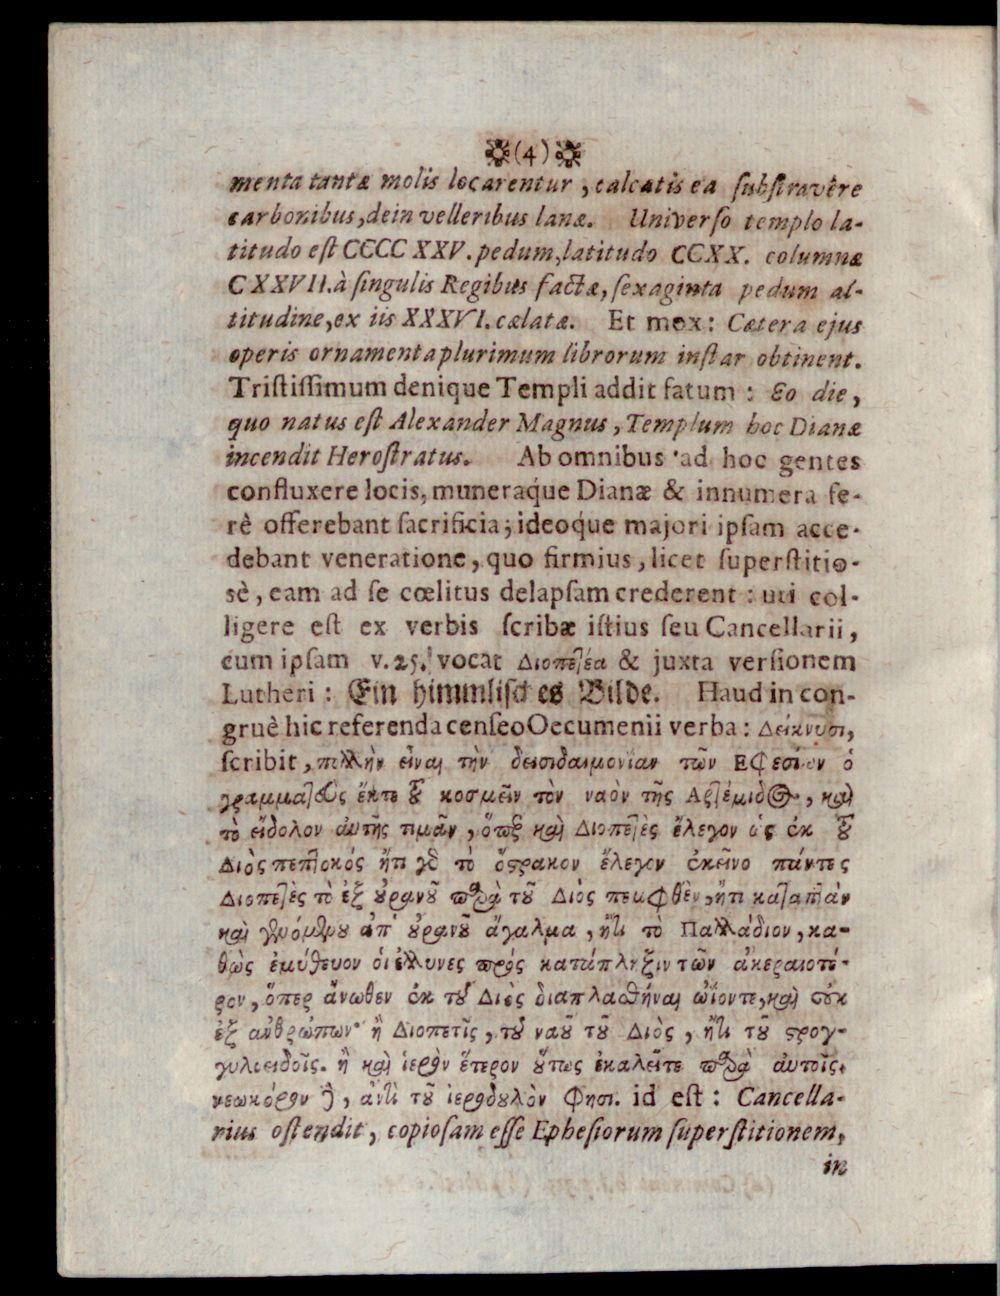 (4)
menta tantæ molis locarentur, calcatis ea ſubſtravêre
carbonibus, dein velleribus lanæ. Univerſo templo la-
titudo eſt CCCC XXV. pedum, latitudo CCXX. columnæ
CXXVII. à ſingulis Regibus factæ, ſexaginta pedum al-
titudine, ex iis XXXVI. cælatæ. Et mox: Cætera ejus
operis ornamenta plurimum librorum inſtar obtinent.
Triſtiſſimum denique Templi addit fatum: Eo die,
quo natus eſt Alexander Magnus, Templum hoc Dianæ
incendit Heroſtratus. Ab omnibus ad hoc gentes
confluxere locis, muneraq́ue Dianæ & innumera fe-
rè offerebant ſacrificia; ideoq́ue majori ipſam acce-
debant veneratione, quo firmius, licet ſuperſtitio-
sè, eam ad ſe cœlitus delapſam crederent: uti col-
ligere eſt ex verbis ſcribæ iſtius ſeu Cancellarii,
cum ipſam v. 25. vocat Διοπετέα & juxta verſionem
Lutheri: Ein himmliſches Bilde. Haud in con-
gruè hic referenda cenſeo Oecumenii verba: Δείκνυσι,
ſcribit, πολλὴν εἶναι τὴν δεισιδαιμονίαν τῶν Εφεσίων ὁ
γραμματεὺς ἔκτε τοῦ κοσμεῖν τὸν ναὸν τῆς Αρτέμιδος, καὶ
τὸ εἴδολον αὐτῆς τιμᾶν, ὅπερ καὶ Διοπετὲς ἔλεγον ὡς ἐκ τοῦ
Διὸς πεπτοκός ἤτι γὸ τὸ ὄστρακον ἔλεγον ἐκεῖνο πάντες
Διοπετὲς τὸ ἐξ οὐρανοῦ παρὰ τοῦ Διός πεμφθὲν, ἤτι καταπτὰν
καὶ γενόμενου ἀπ' οὐρανοῦ ἄγαλμα, ἤτι τὸ Παλλάδιον, κα-
θὼς ἐμύθευον οἱ ἕλλυνες πρός κατάπληξιν τῶν ἀκεραιοτέ-
ρον, ὅπερ ἄνωθεν ἐκ τοῦ Διὸς διαπλασθῆναι ᾤοντε, καὶ οὐκ
ἐξ ανθρώπων· ἢ Διοπετῖς, τοῦ ναοῦ τοῦ Διὸς, ἤτι τοῦ στρογ-
γυλοειδοῖς. ἢ καὶ ἱερὸν ἕτερον οὕτως ἐκαλεῖτε παρὰ αὐτοῖς.
νεωκόρον , ἀντὶ τοῦ ἱεροδουλὸν φησι. id eſt: Cancella-
rius oſtendit, copioſam eſſe Epheſiorum ſuperſtitionem,
in